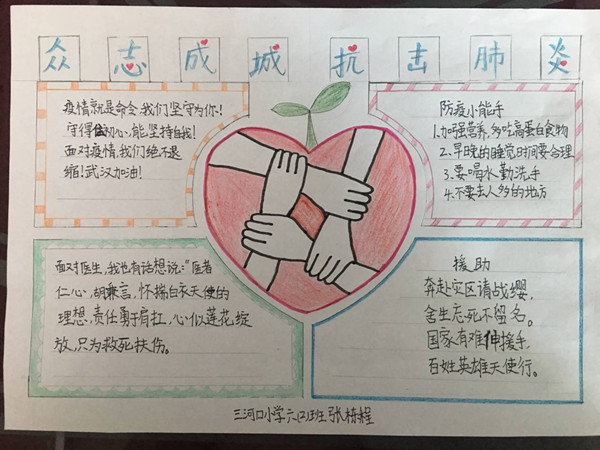 众志成城抗击肺炎
疫情就是命令,我们坚守为你!
守得住初心,能坚持自我!
面对疫情,我们绝不退
缩!武汉加油!
防疫小能手
1.加强营养,多吃高蛋白食物
2、早晚的睡觉时间要合理
3.要喝水勤洗手
4.不要去人多的地方
面对医生,我也有话想说:“医者
仁心,胡兼言,怀揣白衣天使的
理想,责任勇于肩扛,心似莲花绽
放,只为救死扶伤。
援助
奔赴灾区请战缨,
舍生忘死不留名。
国家有难伸援手,
百姓英雄天使行。
三河口小学六(2)班 张栋程